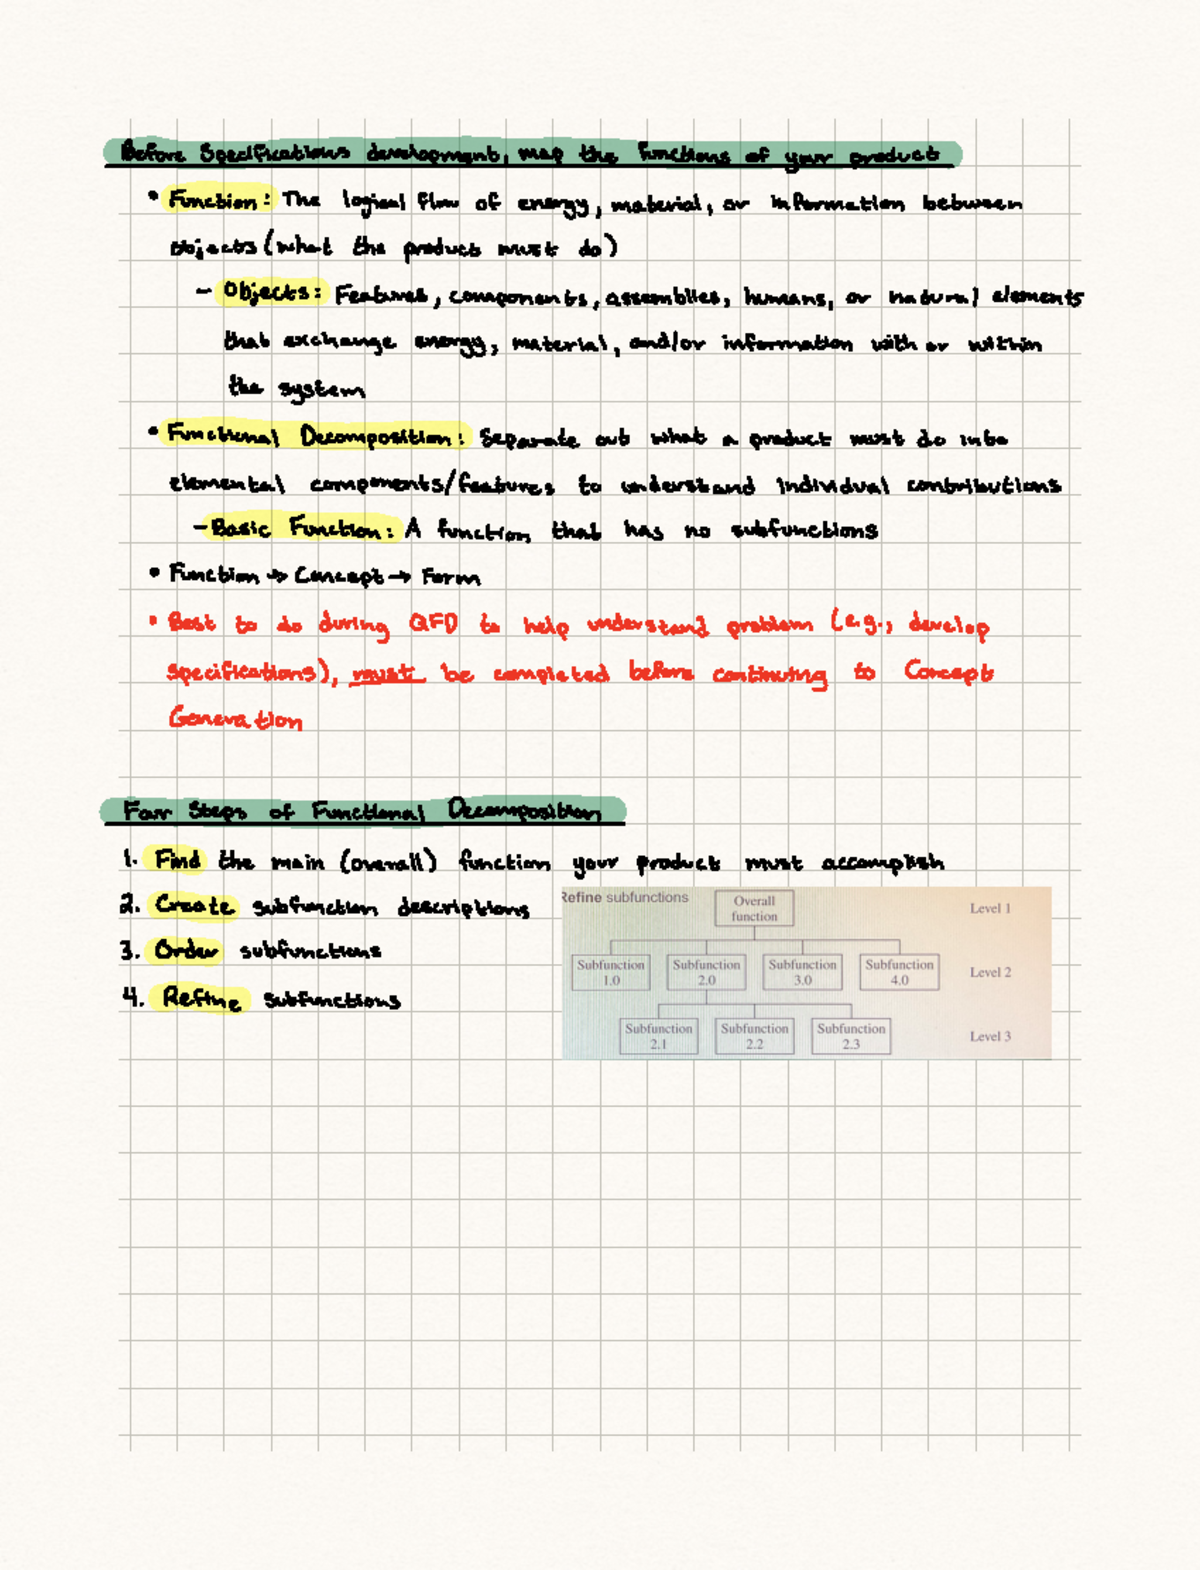 Before Specifications development, map the functions of your product
• Function: The logical flow of energy, material, or information between
objects (what the product must do)
– Objects: Features, components, assemblies, humans, or natural elements
that exchange energy, material, and/or information with or within
the system
• Functional Decomposition: Separate out what a product must do into
elemental components/features to understand individual contributions
– Basic Function: A function that has no subfunctions
• Function → Concept → Form
• Best to do during QFD to help understand problem (e.g., develop
specifications), must be completed before continuing to Concept
Generation
Four Steps of Functional Decomposition
1. Find the main (overall) function your product must accomplish
2. Create subfunction descriptions
3. Order subfunctions
4. Refine subfunctions
Refine subfunctions
Overall
function
Level 1
Subfunction
1.0
Subfunction
2.0
Subfunction
3.0
Subfunction
4.0
Level 2
Subfunction
2.1
Subfunction
2.2
Subfunction
2.3
Level 3